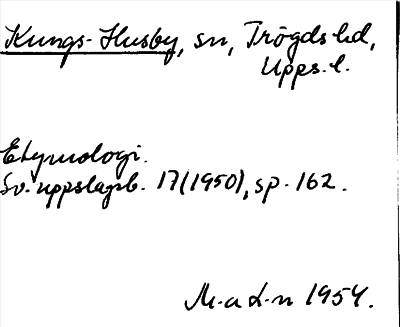 Kungs-Husby, sn, Trögds hd,
Upps. l.
Etymologi.
Sv. uppslagsb. 17(1950), sp. 162.
M-a L-n 1954.